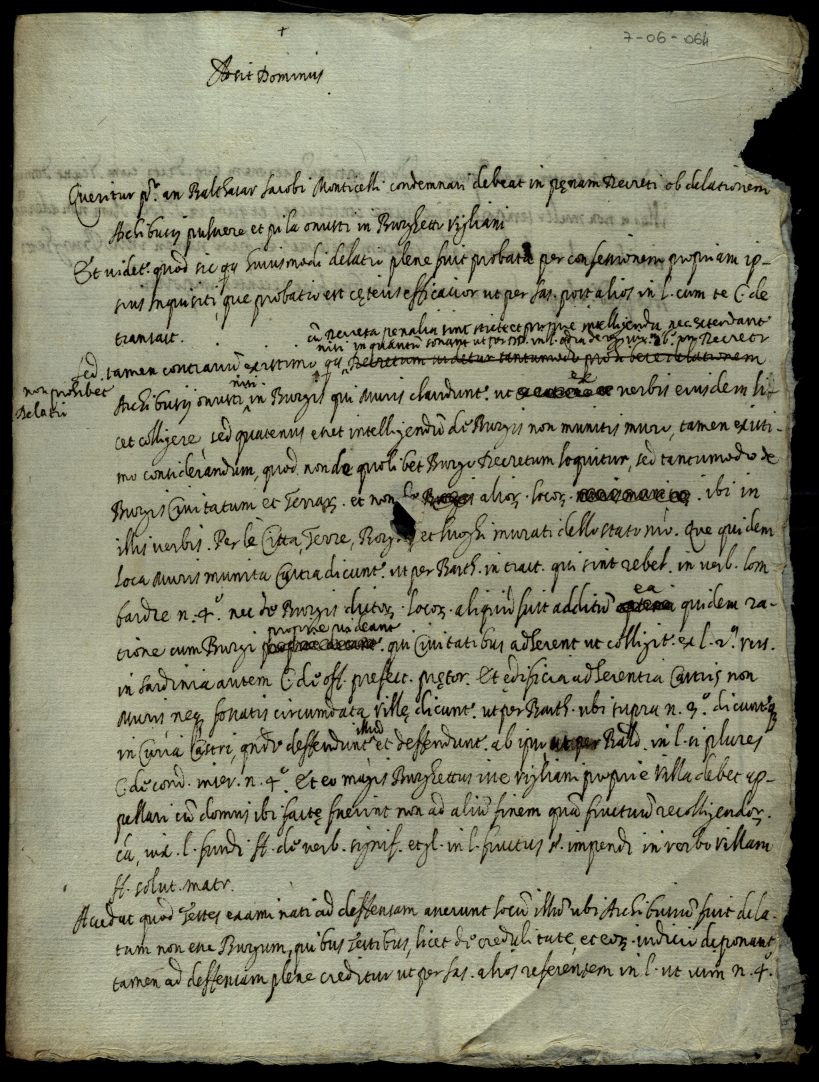 +
7-06-064
Adsit Dominus
Queritur p.º an Balthasar Jacobi Monticelli condemnari debeat in pęnam Decreti ob delationem
Archibusij pulvere et pila onusti in Burghetto Vigliani
Et videt.r quod sic q.a huiusmodi delatio plene fuit probata per confessionem propriam ip-
sius Inquisiti, que probatio est cęteris efficacior ut per Jas. post alios in l. cum te C. de
transact.
cũ decreta penalia sint stricte et proprie intelligenda nec extendant.r
nisi in quantũ sonant ut per
sed tamen contrariũ existimo q.a Decretum
non prohibet
delatio
Archibusij onusti nisi in Burgis qui muris clauduntr. ut ex verbis eiusdem li-
cet colligere, sed quatenus esset intelligendũ de Burgis non munitis muro, tamen existi-
mo considerandum, quod non de quolibet Burgo Decretum loquitur, sed tantumodo de
Burgis Civitatum et Terrar. et non de alior. locor. ibi in
illis verbis. Per le Citta, Terre, Borghi et luoghi murati dello stato nrõ. Que quidem
loca muris munita Castra dicuntr. ut per Barth. in tract. qui sint rebel. in verb. lom
bardie n. 4.º nec de Burgis dictor. locor. aliquid fuit additũ ea quidem ra-
tione cum Burgi proprie videant.r qui Civitatibus adherent ut colligit.r ex l. 2.ª vers.
in Sardinia autem C. de off. prefect. prętor. Et ędificia adherentia Castris non
muris neq. fossatis circumdata villę dicuntr. ut per Barth. ubi supra n. 3.º dicuntr. q.
in Curia Castri, quare deffenduntr illud et deffenduntr. ab ipso Bald. in l. si plures
C. de cond. inser. n. 4.º Et eo magis Burghettus iste Vigliani proprie Villa debet ap-
pellari cũ domus ibi factę fuerint non ad aliũ finem quã fructuũ recolligendor.
cã, iux. l. fundi ff. de verb. signif. et gl. in l. fructus §. impendi in verbo villam
ff. solut. matr.
Accedat quod Testes examinati ad deffensam averunt locũ illũ ubi Archibusiũ fuit dela-
tum non esse Burgum, quibus testibus, licet de credulitate, et eor. iudicio deponant
tamen ad deffensam plene creditur ut per Jas. alios referentem in l. ut vim n. 4.º